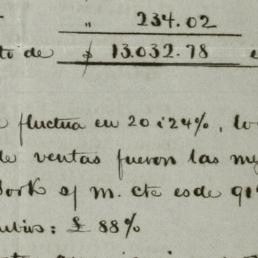 " 234.02
to de $ 13.032.78 e
fluctua en 20 i 24%, lo
de ventas fueron las my
York s/ m. cte es de 91
ubis: £ 88%